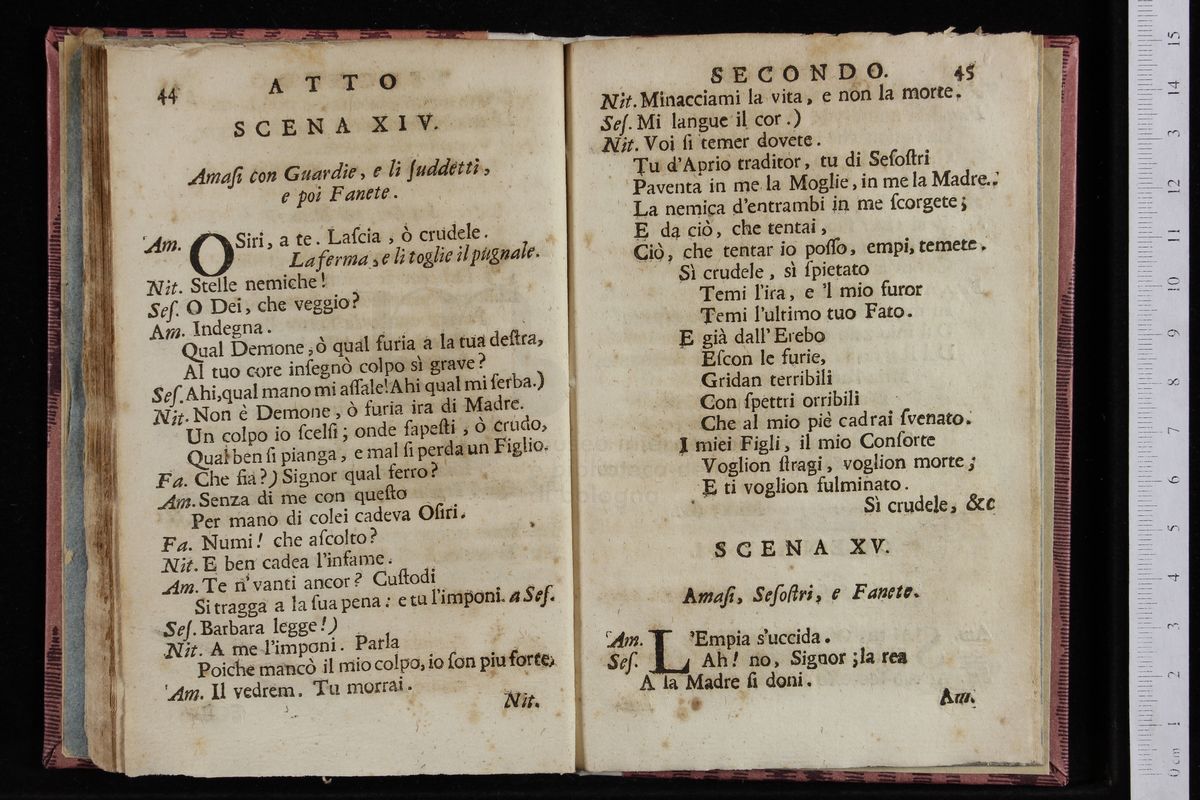 44
ATTO
SCENA XIV.
Amaſi con Guardie, e li ſuddetti,
e poi Fanete.
Am. OSiri, a te. Laſcia, ò crudele.
La ferma, e li toglie il pugnale.
Nit. Stelle nemiche!
Seſ. O Dei, che veggio?
Am. Indegna.
Qual Demone, ò qual furia a la tua deſtra,
Al tuo core inſegnò colpo sì grave?
Seſ. Ahi, qual mano mi aſſale! Ahi qual mi ſerba.)
Nit. Non è Demone, ò furia ira di Madre.
Un colpo io ſcelſi; onde ſapeſti, ò crudo,
Qual ben ſi pianga, e mal ſi perda un Figlio.
Fa. Che fia?) Signor qual ferro?
Am. Senza di me con queſto
Per mano di colei cadeva Oſiri.
Fa. Numi! che aſcolto?
Nit. E ben cadea l'infame.
Am. Te n'vanti ancor? Cuſtodi
Si tragga a la ſua pena: e tu l'imponi. a Seſ.
Seſ. Barbara legge!)
Nit. A me l'imponi. Parla
Poiche mancò il mio colpo, io ſon piu forte.
Am. Il vedrem. Tu morrai.
Nit.
SECONDO.
45
Nit. Minacciami la vita, e non la morte.
Seſ. Mi langue il cor.)
Nit. Voi ſi temer dovete.
Tu d'Aprio traditor, tu di Seſoſtri
Paventa in me la Moglie, in me la Madre.
La nemica d'entrambi in me ſcorgete;
E da ciò, che tentai,
Ciò, che tentar io poſſo, empi, temete.
Sì crudele, sì ſpietato
Temi l'ira, e 'l mio furor
Temi l'ultimo tuo Fato.
E già dall' Erebo
Eſcon le furie,
Gridan terribili
Con ſpettri orribili
Che al mio piè cadrai ſvenato.
I miei Figli, il mio Conſorte
Voglion ſtragi, voglion morte;
E ti voglion fulminato.
Sì crudele, &c
SCENA XV.
Amaſi, Seſoſtri, e Fanete.
Am. L'Empia s'uccida.
Seſ. Ah! no, Signor; la rea
A la Madre ſi doni.
Am.